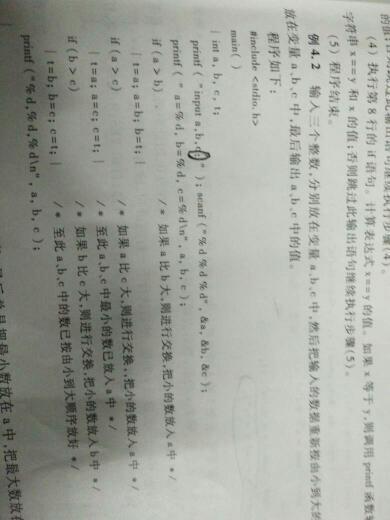 (4) 执行第 8 行的 if 语句。计算表达式 x==y 的值。如果 x 等于 y,则调用 printf 函数
字符串 x==y 和 x 的值;否则跳过此输出语句继续执行步骤(5)。
(5) 程序结束。
例 4.2 输入三个整数,分别放在变量 a、b、c 中,然后把输入的数据重新按由小到大的
放在变量 a、b、c 中,最后输出 a、b、c 中的值。
程序如下:
#include <stdio.h>
main( )
{ int a, b, c, t;
printf ( "input a,b,c:" ); scanf("%d%d%d", &a, &b, &c );
printf ( " a=%d, b=%d, c=%d\n", a, b, c );
if (a > b) /* 如果 a 比 b 大,则进行交换,把小的数放入 a 中 */
{ t=a; a=b; b=t; }
if (a > c) /* 如果 a 比 c 大,则进行交换,把小的数放入 a 中 */
{ t=a; a=c; c=t; } /* 至此 a、b、c 中最小的数已放入 a 中 */
if (b > c) /* 如果 b 比 c 大,则进行交换,把小的数放入 b 中 */
{ t=b; b=c; c=t; } /* 至此 a、b、c 中的数已按由小到大顺序放好 */
printf ("%d,%d,%d\n", a, b, c );
把最小数放在 a 中,把最大数放在